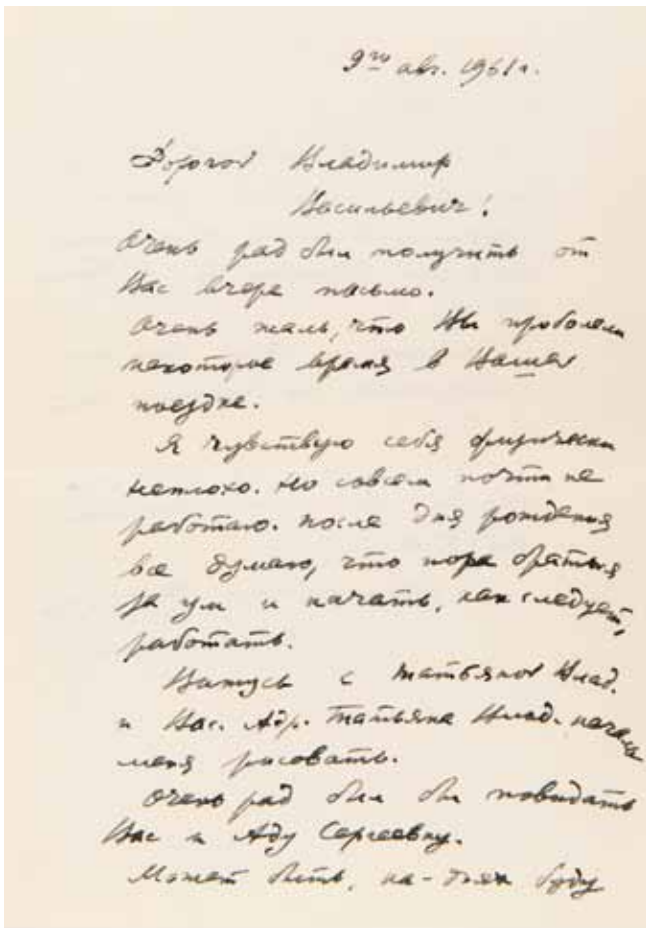 9го авг. 1961 г.
Дорогой Владимир
Васильевич!
Очень рад был получить от
Вас вчера письмо.
Очень жаль, что Вы проболели
некоторое время в Вашей
поездке.
Я чувствую себя физически
неплохо. Но совсем почти не
работаю. После дня рождения
все думаю, что пора браться
за ум и начать, как следует,
работать.
с Татьяной Влад.
и Вас. Адр. Татьяна Влад. начала
меня рисовать.
Очень рад был бы повидать
Вас и Аду Сергеевну.
Может быть, на-днях буду